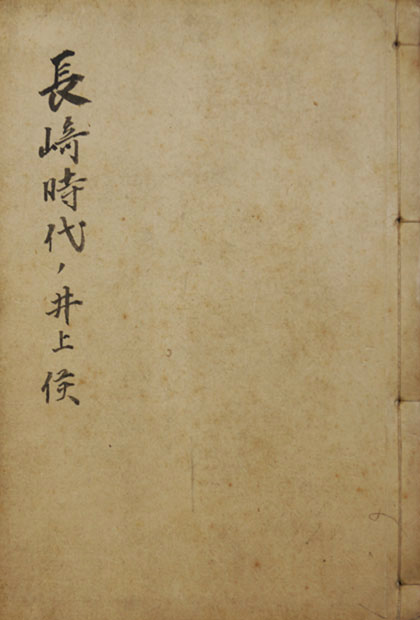 長崎時代ノ井上侯